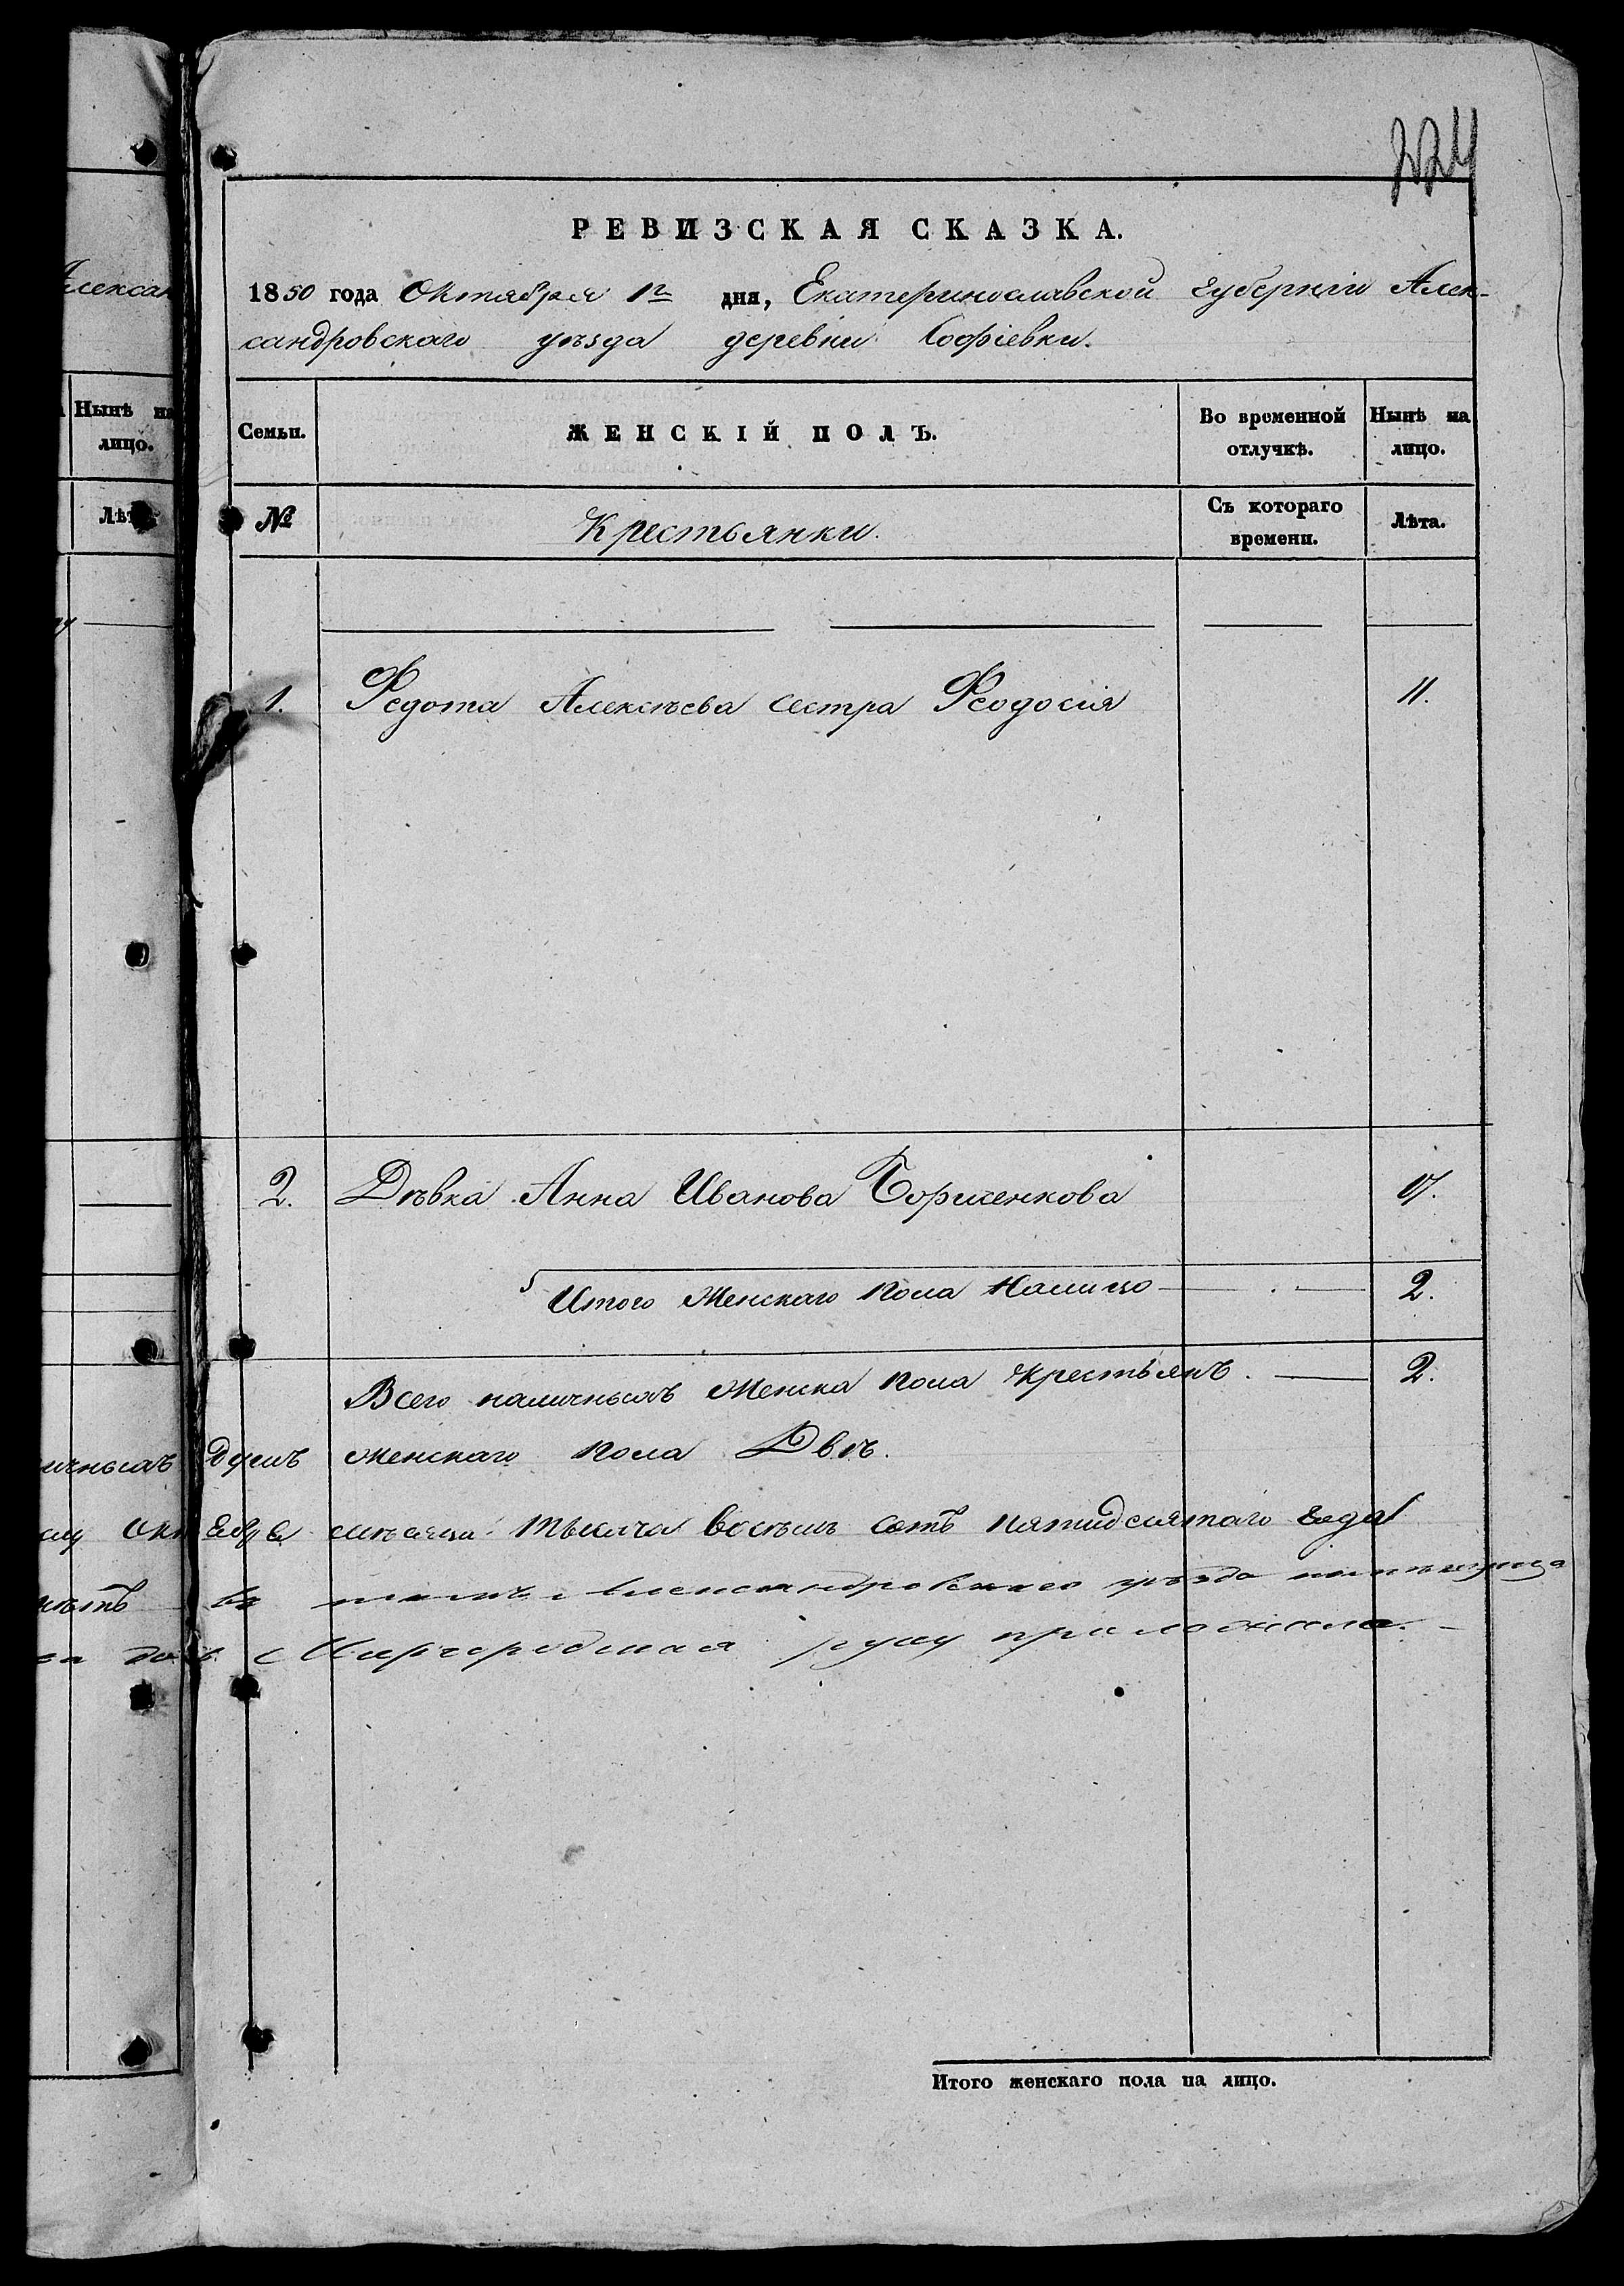 224
РЕВИЗСКАЯ СКАЗКА.
1850 года Октября 1го дня, Екатеринославской губерніи Алек-
сандровскаго уѣзда деревни Софіевки.
Алексан
Нынѣ на лицо.
Лѣта
Семьи. ЖЕНСКІЙ ПОЛЪ. Во временной отлучкѣ. Нынѣ на лицо.
№ Крестьянки. Съ котораго времени. Лѣта.
1. Федота Алексѣева сестра Феодосія 11.
2. Дѣвка Анна Иванова Борисенкова 17.
Итого Женскаго пола налицо 2.
Всего наличныхъ женска пола крестьянъ. 2.
ичныхъ душъ женскаго пола Двѣ.
мѣсяца тысяча восемь сотъ пятидесятаго года
Александровскаго уѣзда помѣщица
Миргородская руку приложила.
Итого женскаго пола на лицо.